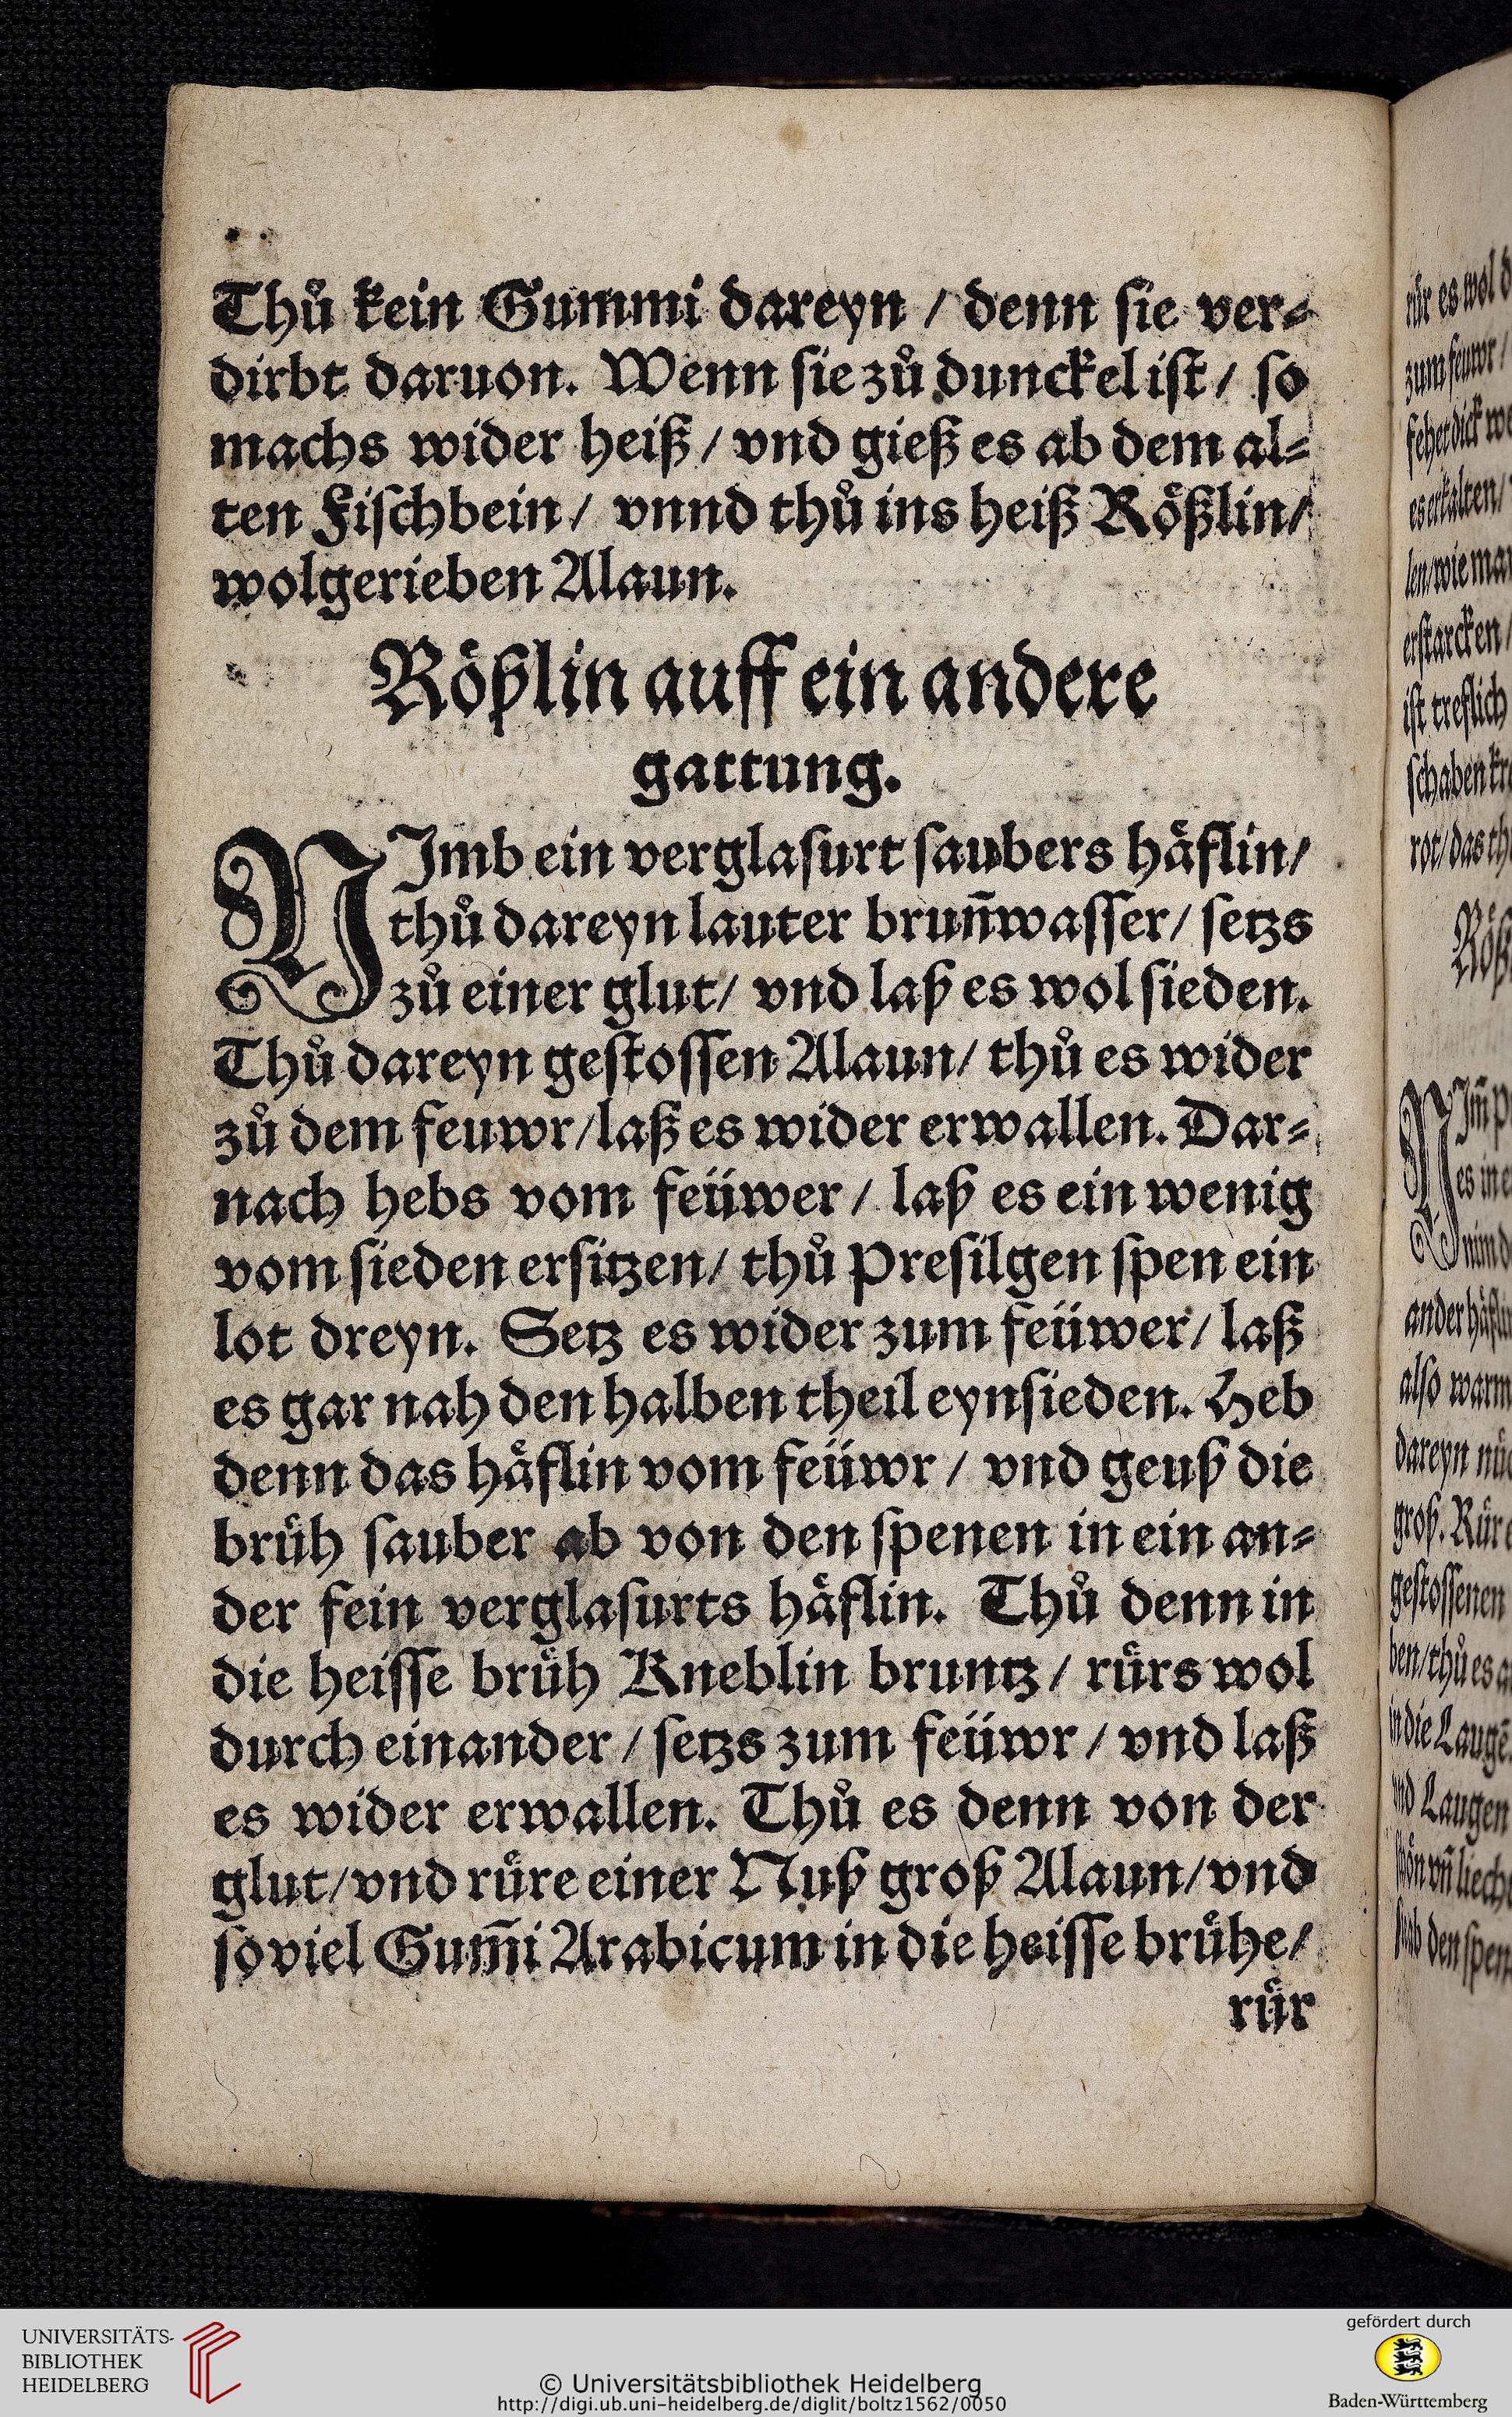 Thuͦ kein Gummi dareyn / denn sie ver⸗
dirbt daruon. Wenn sie zuͦ dunckel ist / so
machs wider heiß / vnd gieß es ab dem al⸗
ten Fischbein / vnnd thuͦ ins heiß Roͤßlin /
wolgerieben Alaun.
Roͤßlin auff ein andere
gattung.
NImb ein verglasurt saubers haͤflin /
thuͦ dareyn lauter brun̄wasser / setzs
zuͦ einer glut / vnd laß es wol sieden.
Thuͦ dareyn gestossen Alaun / thuͦ es wider
zuͦ dem feuwr / laß es wider erwallen. Dar⸗
nach hebs vom feüwer / laß es ein wenig
vom sieden ersitzen / thuͦ Presilgen spen ein
lot dreyn. Setz es wider zum feüwer / laß
es gar nah den halben theil eynsieden. Heb
denn das haͤflin vom feüwr / vnd geuß die
bruͤh sauber ab von den spenen in ein an⸗
der fein verglasurts haͤflin. Thuͦ denn in
die heisse bruͤh Kneblin bruntz / ruͤrs wol
durch einander / setzs zum feüwr / vnd laß
es wider erwallen. Thuͦ es denn von der
glut / vnd ruͤre einer Nuß groß Alaun / vnd
so viel Gum̄i Arabicum in die heisse bruͤhe /
ruͤr
ruͤr es wol
zum feuwr /
es erkalten /
len / wie man
erstarcken /
ist treflich
rot / das
Nim̄
es in
ander haͤflin
also warm
dareyn
groß. Ruͤr
gestossenen
ben / thuͦ es
in die Laugē
vnd Laugen
ab den spen
UNIVERSITÄTS-
BIBLIOTHEK
HEIDELBERG
© Universitätsbibliothek Heidelberg
http://digi.ub.uni-heidelberg.de/diglit/boltz1562/0050
gefördert durch
Baden-Württemberg